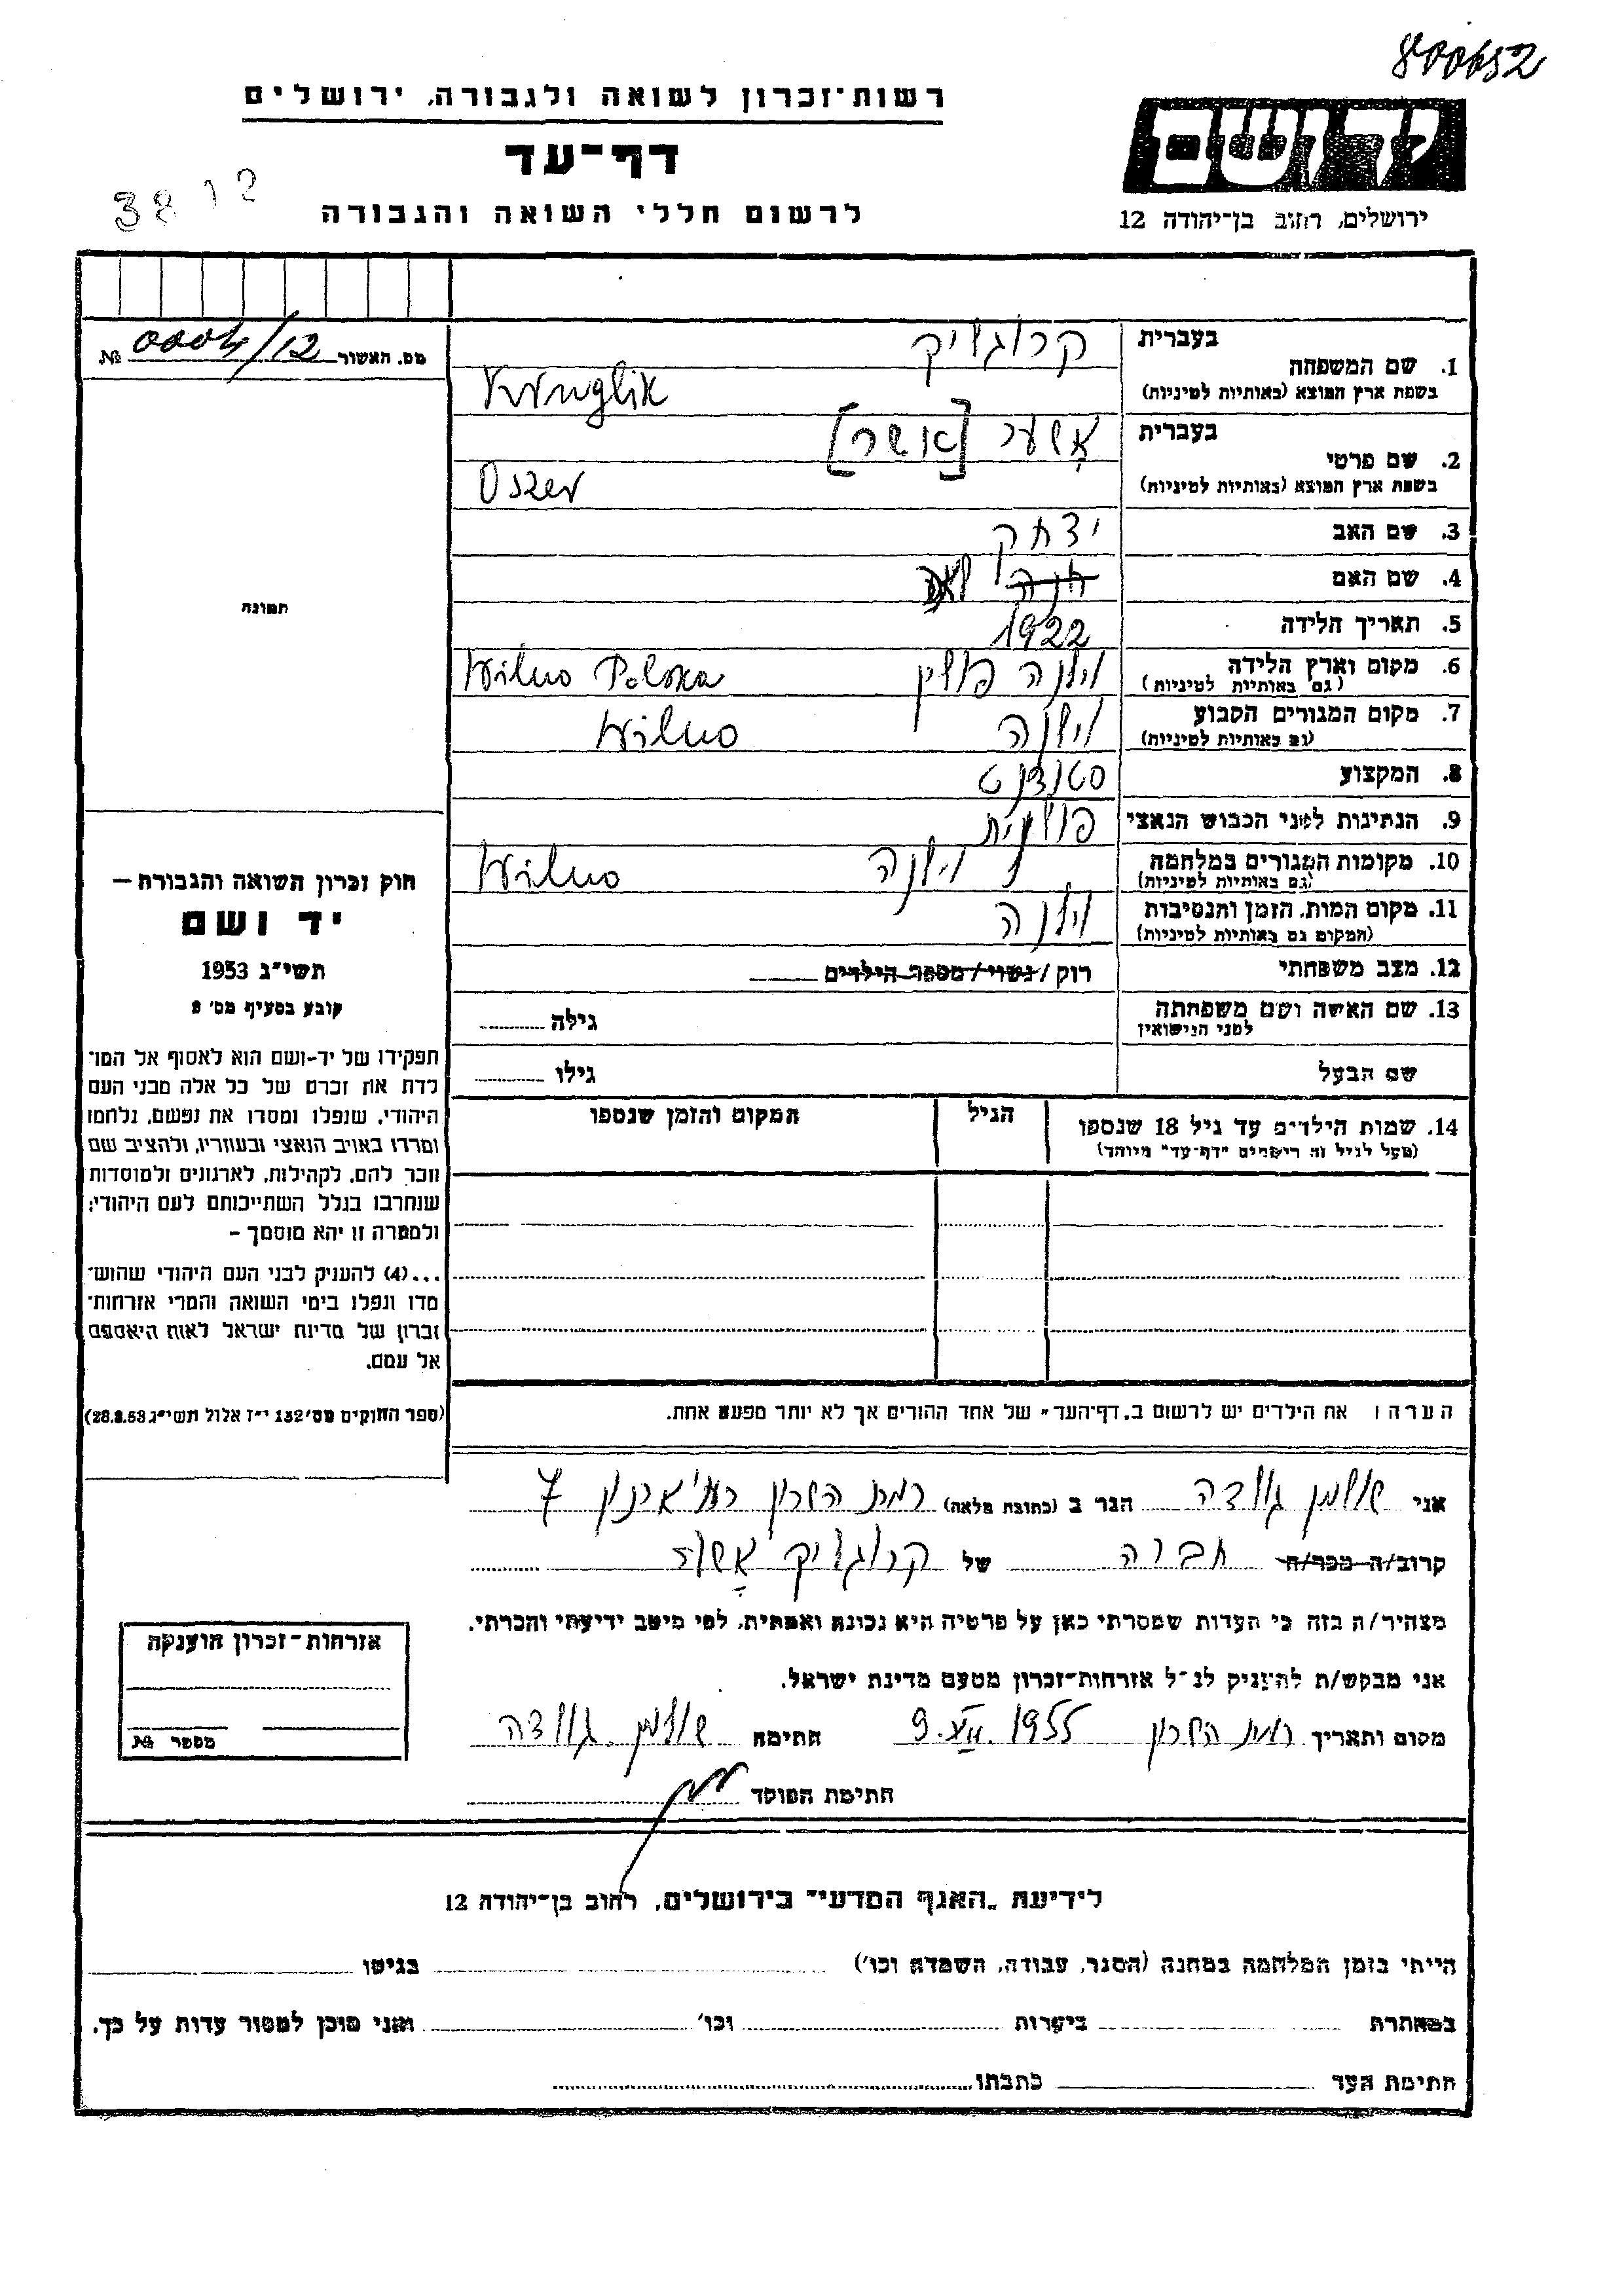 800652
רשות־זכרון לשואה ולגבורה, ירושלים
דף־עד
לרשום חללי השואה והגבורה
3812
יד ושם
ירושלים, רחוב בן־יהודה 12
מס. האשור 0004/12 №
תמונה
חוק זכרון השואה והגבורה —
יד ושם
תשי״ג 1953
קובע בסעיף מס׳ 2
תפקידו של יד-ושם הוא לאסוף אל המו־
לדת את זכרם של כל אלה מבני העם
היהודי, שנפלו ומסרו את נפשם, נלחמו
ומרדו באויב הנאצי ובעוזריו, ולהציב שם
וזכר להם, לקהילות, לארגונים ולמוסדות
שנחרבו בגלל השתייכותם לעם היהודי;
ולמטרה זו יהא מוסמך –
...(4) להעניק לבני העם היהודי שהוש־
מדו ונפלו בימי השואה והמרי אזרחות־
זכרון של מדינת ישראל לאות היאספם
אל עמם.
(ספר החוקים מס׳ 132 י״ז אלול תשי״ג 28.8.53)
1. שם המשפחה בעברית קרוגליק
בשפת ארץ המוצא (באותיות לטיניות) Kruglik
2. שם פרטי בעברית אָשער [אשר]
בשפת ארץ המוצא (באותיות לטיניות) Oszer
3. שם האב יצחק
4. שם האם חנה לאה
5. תאריך הלידה 1922
6. מקום וארץ הלידה (גם באותיות לטיניות) וילנה פולין Wilno Polska
7. מקום המגורים הקבוע (גם באותיות לטיניות) וילנה Wilno
8. המקצוע סטודנט
9. הנתינות לפני הכבוש הנאצי פולנית
10. מקומות המגורים במלחמה (גם באותיות לטיניות) וילנה Wilno
11. מקום המות, הזמן והנסיבות (המקום גם באותיות לטיניות) וילנה
12. מצב משפחתי רוק / נשוי / מספר הילדים
13. שם האשה ושם משפחתה לפני הנישואין גילה
שם הבעל גילו
14. שמות הילדים עד גיל 18 שנספו הגיל המקום והזמן שנספו
(מעל לגיל זה רישמים "דף-עד" מיוחד)
הערה: את הילדים יש לרשום ב„דף־העד״ של אחד ההורים אך לא יותר מפעם אחת.
אני שולמן גולדה הגר ב (כתובת מלאה) רמת השרון 7
קרוב/ה מכר/ה חברה של קרוגליק אָשר
מצהיר/ה בזה כי העדות שמסרתי כאן על פרטיה היא נכונה ואמתית, לפי מיטב ידיעתי והכרתי.
אני מבקש/ת להעניק לנ״ל אזרחות־זכרון מטעם מדינת ישראל.
מקום ותאריך רמת השרון 1955 חתימה שולמן גולדה
חתימת הפוקד
אזרחות־זכרון הוענקה
מספר №
לידיעת „האגף המדעי״ בירושלים, רחוב בן־יהודה 12
הייתי בזמן המלחמה במחנה (הסגר, עבודה, השמדה וכו׳) בגיטו
במחתרת ביערות וכו׳ ואני מוכן למסור עדות על כך.
חתימת העד כתבתו